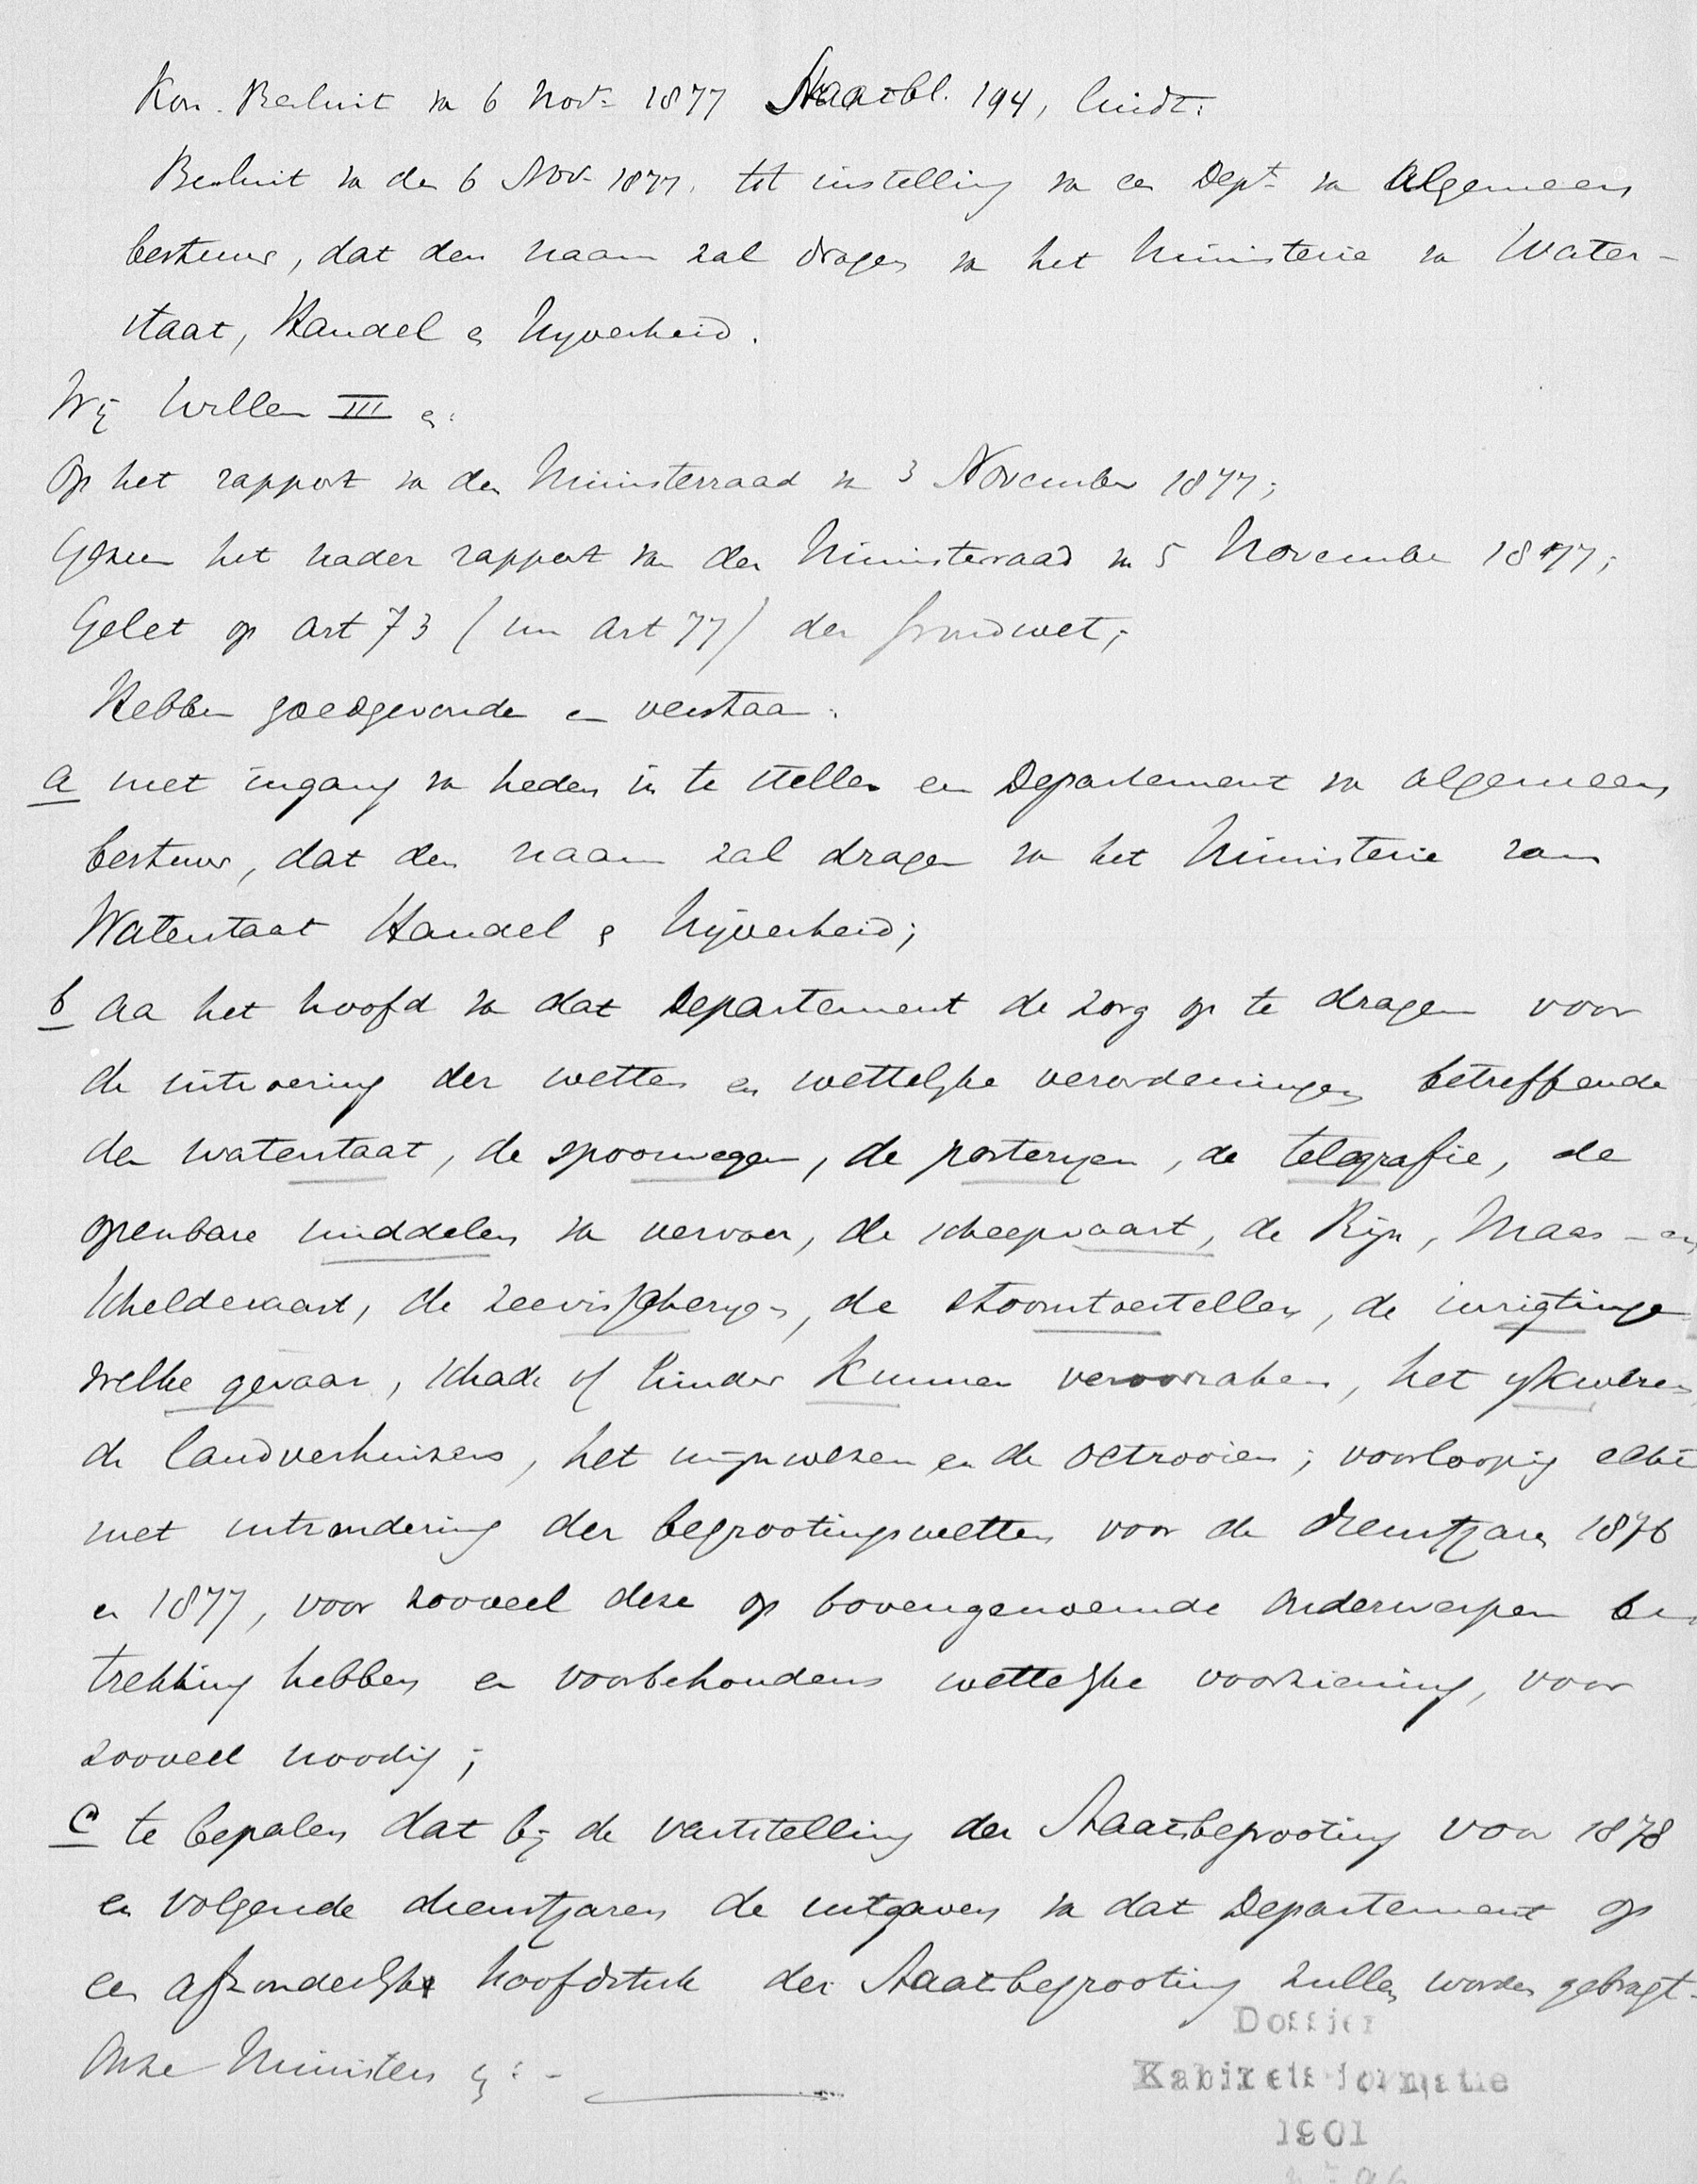 Kon. Besluit va 6 Nov. 1877 Staatsbl. 194, luidt:
Besluit va den 6 Nov. 1877. tot instelling va een Dept va Algemeen
bestuur, dat den naam zal dragen va het Ministerie va Water-
staat, Handel en Nijverheid.
Wij Willem III en:
Op het rapport va den Ministerraad va 3 November 1877;
Gezien het nader rapport van den Ministerraad va 5 November 1877;
Gelet op art 73 (nu art 77) der Grondwet;
Hebben goedgevonden en verstaan:
a met ingang va heden in te stellen een Departement va algemeen
bestuur, dat den naam zal dragen va het Ministerie van
Waterstaat Handel en Nijverheid;
b aa het hoofd va dat Departement de zorg op te dragen voor
de uitvoering der wetten en wettelijke verordeningen betreffende
den waterstaat, de spoorwegen, de posteryen, de telegrafie, de
openbare middelen va vervoer, de scheepvaart, de Rijn, Maas - en
Scheldevaart, de zeevisscheryen, de stoomtoestellen, de inrigtingen
welke gevaar, schade of hinder kunnen veroorzaken, het ijkwezen,
de landverhuizers, het mijnwezen en de octrooien; voorloopig echter
met uitzondering der begrootingswetten voor de dienstjaren 1876
en 1877, voor zooveel deze op bovengenoemde onderwerpen be
trekking hebben en voorbehoudens wettelijke voorziening, voor
zooveel noodig;
c te bepalen dat bij de vaststelling der Staatsbegrooting voor 1878
en volgende dienstjaren de uitgaven va dat Departement op
een afzonderlijk hoofdstuk der Staatsbegrooting zullen worden gebragt.
Onze Ministers
Dossier
Kabinetsformatie
1901